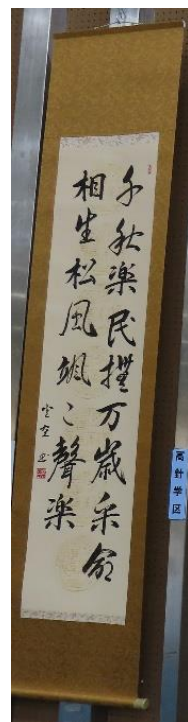 千秋楽民撫万歳楽命
相生松風颯々聲楽
高針学区